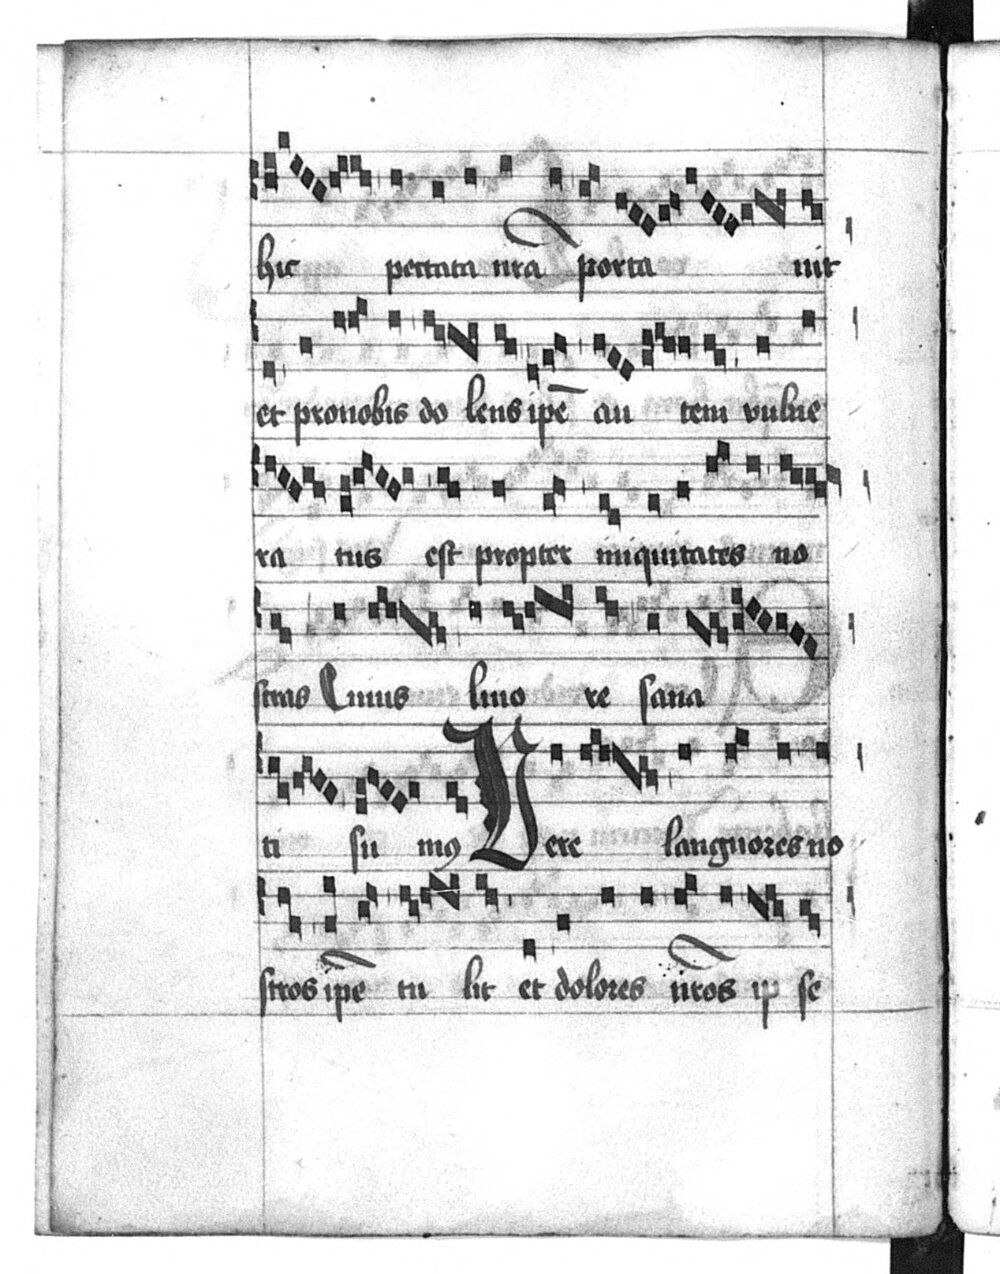 hic peccata nr̄a porta uit
et pronobis do lens ip̄e au tem vulne
ra tus est propter iniquitates no
stras Cuius liuo re sana
ti su mꝯ Uere languores no
stros ip̄e tu lit et dolores nr̄os ip se